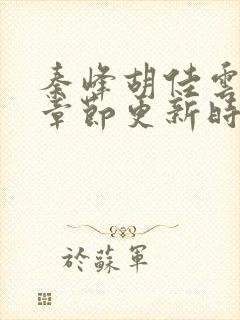 秦峰胡佳雲
章節更新時
於蘇軍